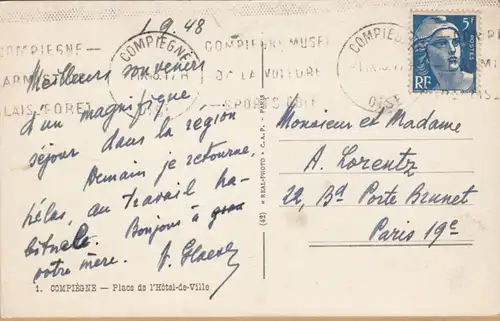 1.9.48
Meilleurs souvenirs
d'un magnifique
séjour dans la région
Demain je retourne,
hélas, au travail ha-
bituelle. Bonjours à
votre mère.
1. COMPIÈGNE — Place de l'Hôtel-de-Ville
(43) « REAL-PHOTO » C.A.P. - PARIS
COMPIEGNE
COMPIEGNE MUSEE
DE LA VOITURE
SPORTS GOLF
COMPIEGNE
OISE
5F
POSTES
RF
Monsieur et Madame
A. Lorentz
22, Bd Porte Brunet
Paris 19e